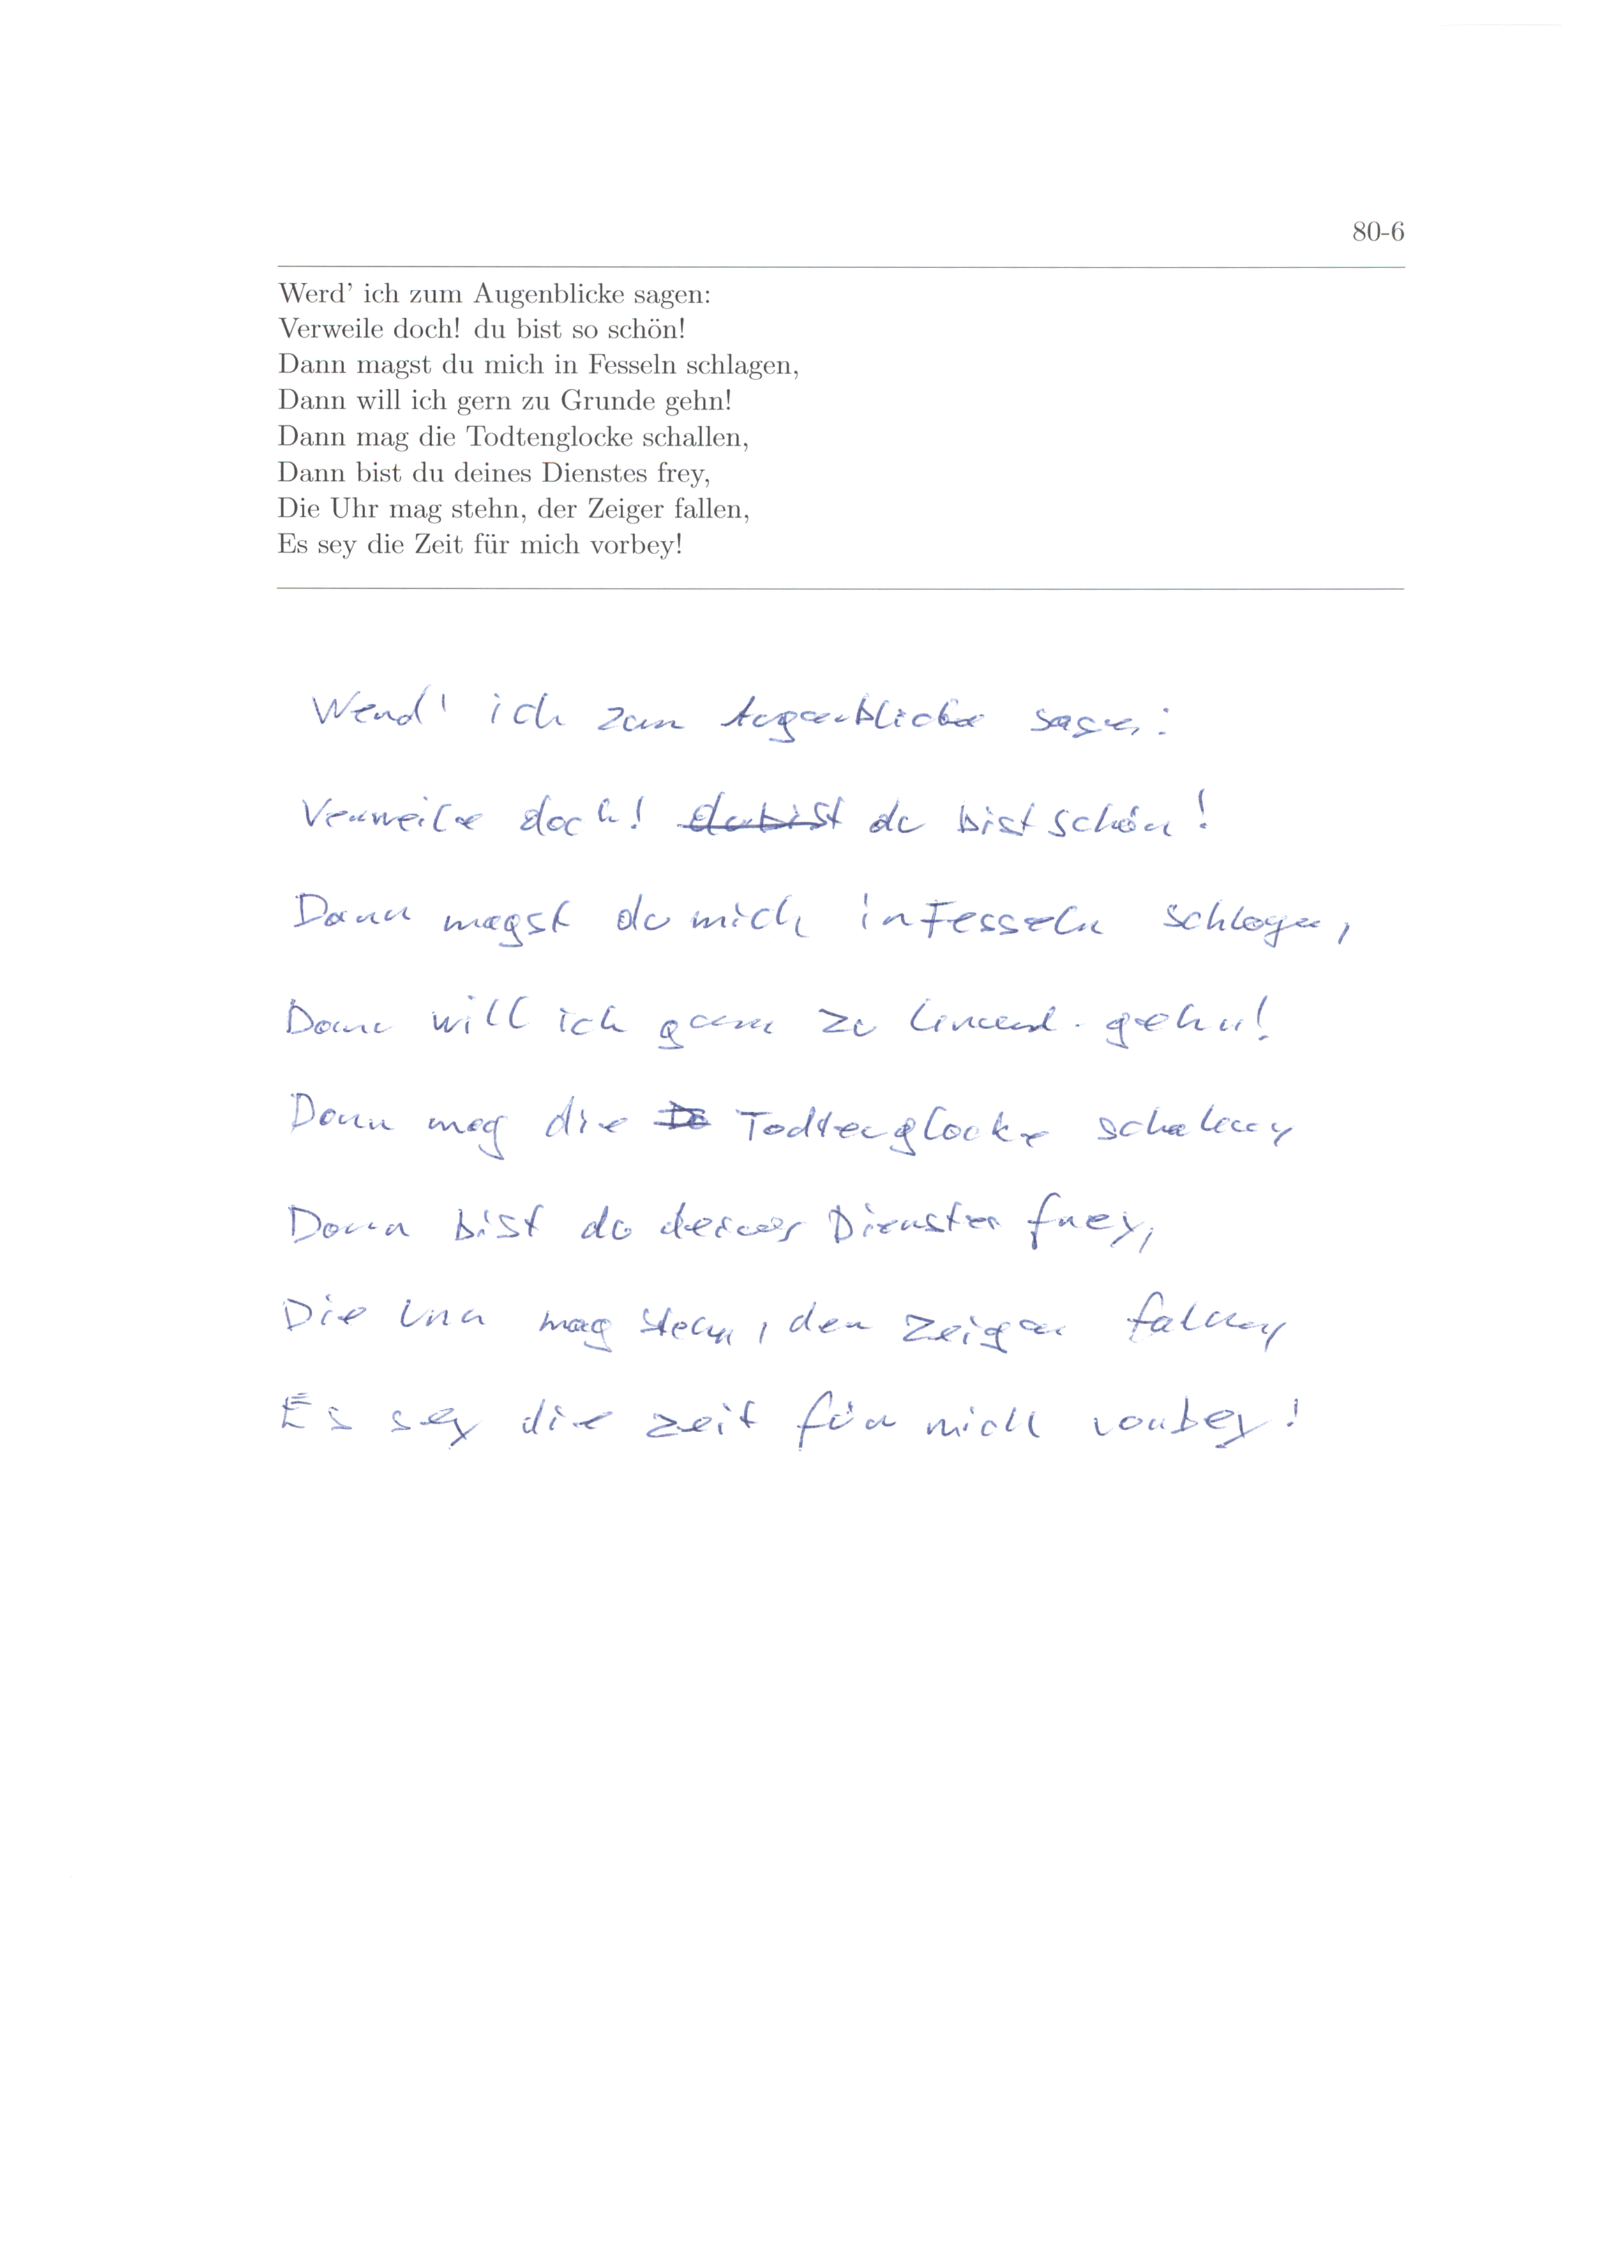 80-6
Werd' ich zum Augenblicke sagen:
Verweile doch! du bist so schön!
Dann magst du mich in Fesseln schlagen,
Dann will ich gern zu Grunde gehn!
Dann mag die Todtenglocke schallen,
Dann bist du deines Dienstes frey,
Die Uhr mag stehn, der Zeiger fallen,
Es sey die Zeit für mich vorbey!
Werd' ich zum Augenblicke sagen:
Verweile doch! du bist du bist schön!
Dann magst du mich in Fesseln schlagen,
Dann will ich gern zu gehn!
Dann mag die Todtenglocke schallen,
Dann bist du deines Dienstes frey,
Die Uhr mag stehn, der Zeiger fallen,
Es sey die Zeit für mich vorbey!